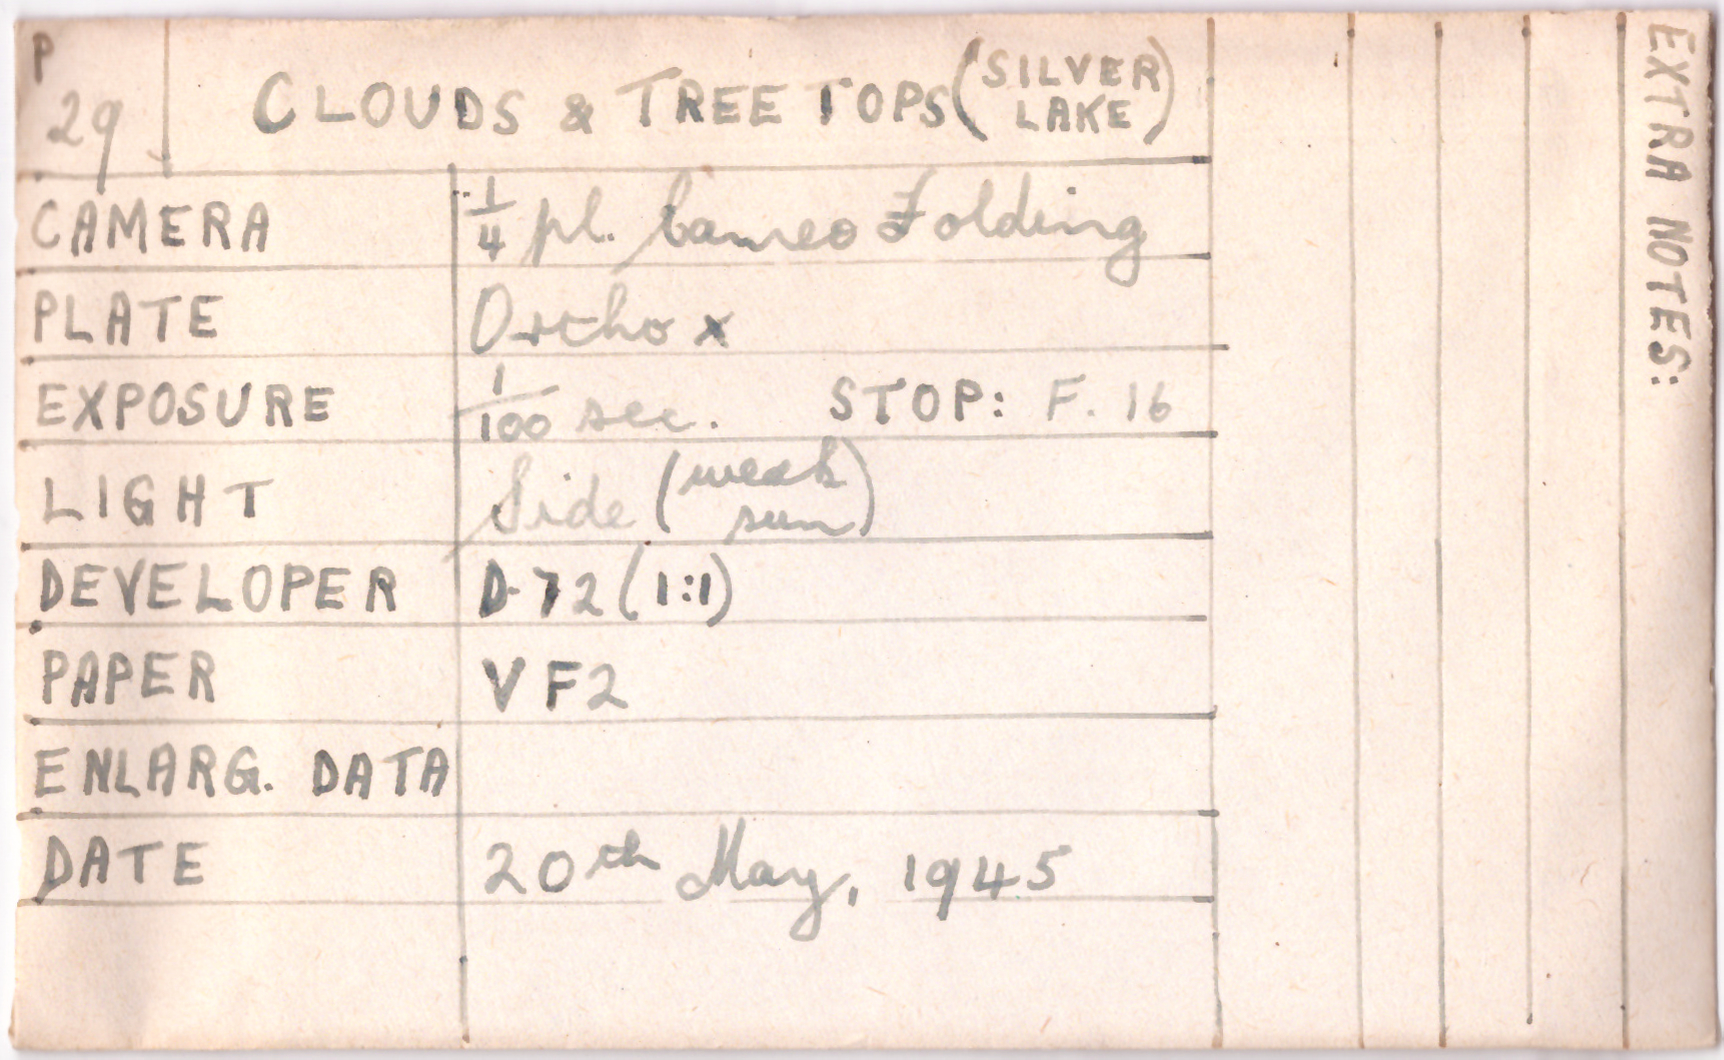 P
29
CLOUDS & TREE TOPS (SILVER LAKE)
CAMERA 1/4 pl. Cameo Folding
PLATE Ortho x
EXPOSURE 1/100 sec. STOP: F. 16
LIGHT Side (weak sun)
DEVELOPER D-72 (1:1)
PAPER VF2
ENLARG. DATA
DATE 20th May, 1945
EXTRA NOTES: